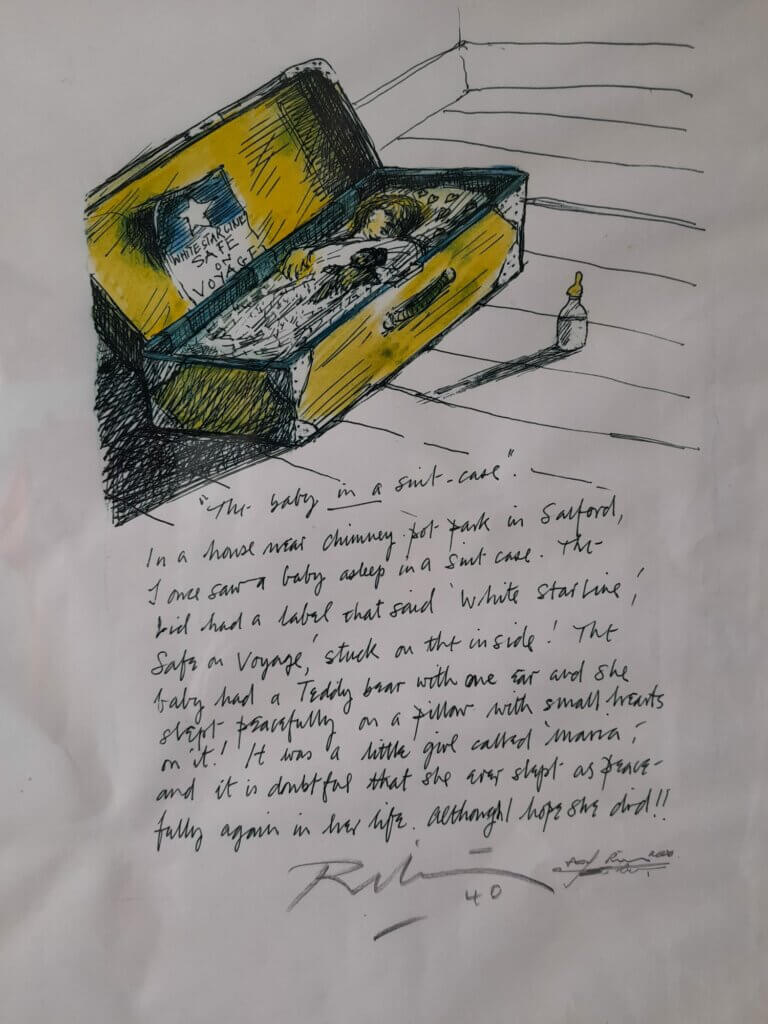 WHITE STAR LINE
SAFE
ON
VOYAGE
"The baby in a suit-case".
In a house near chimney pot park in Salford,
I once saw a baby asleep in a suit case. The
Lid had a label that said 'White Star Line',
Safe on Voyage', stuck on the inside! The
baby had a Teddy bear with one ear and she
slept peacefully on a pillow with small hearts
on it! It was a little girl called 'maria',
and it is doubtful that she ever slept as peace-
fully again in her life. Although I hope she did!!
40